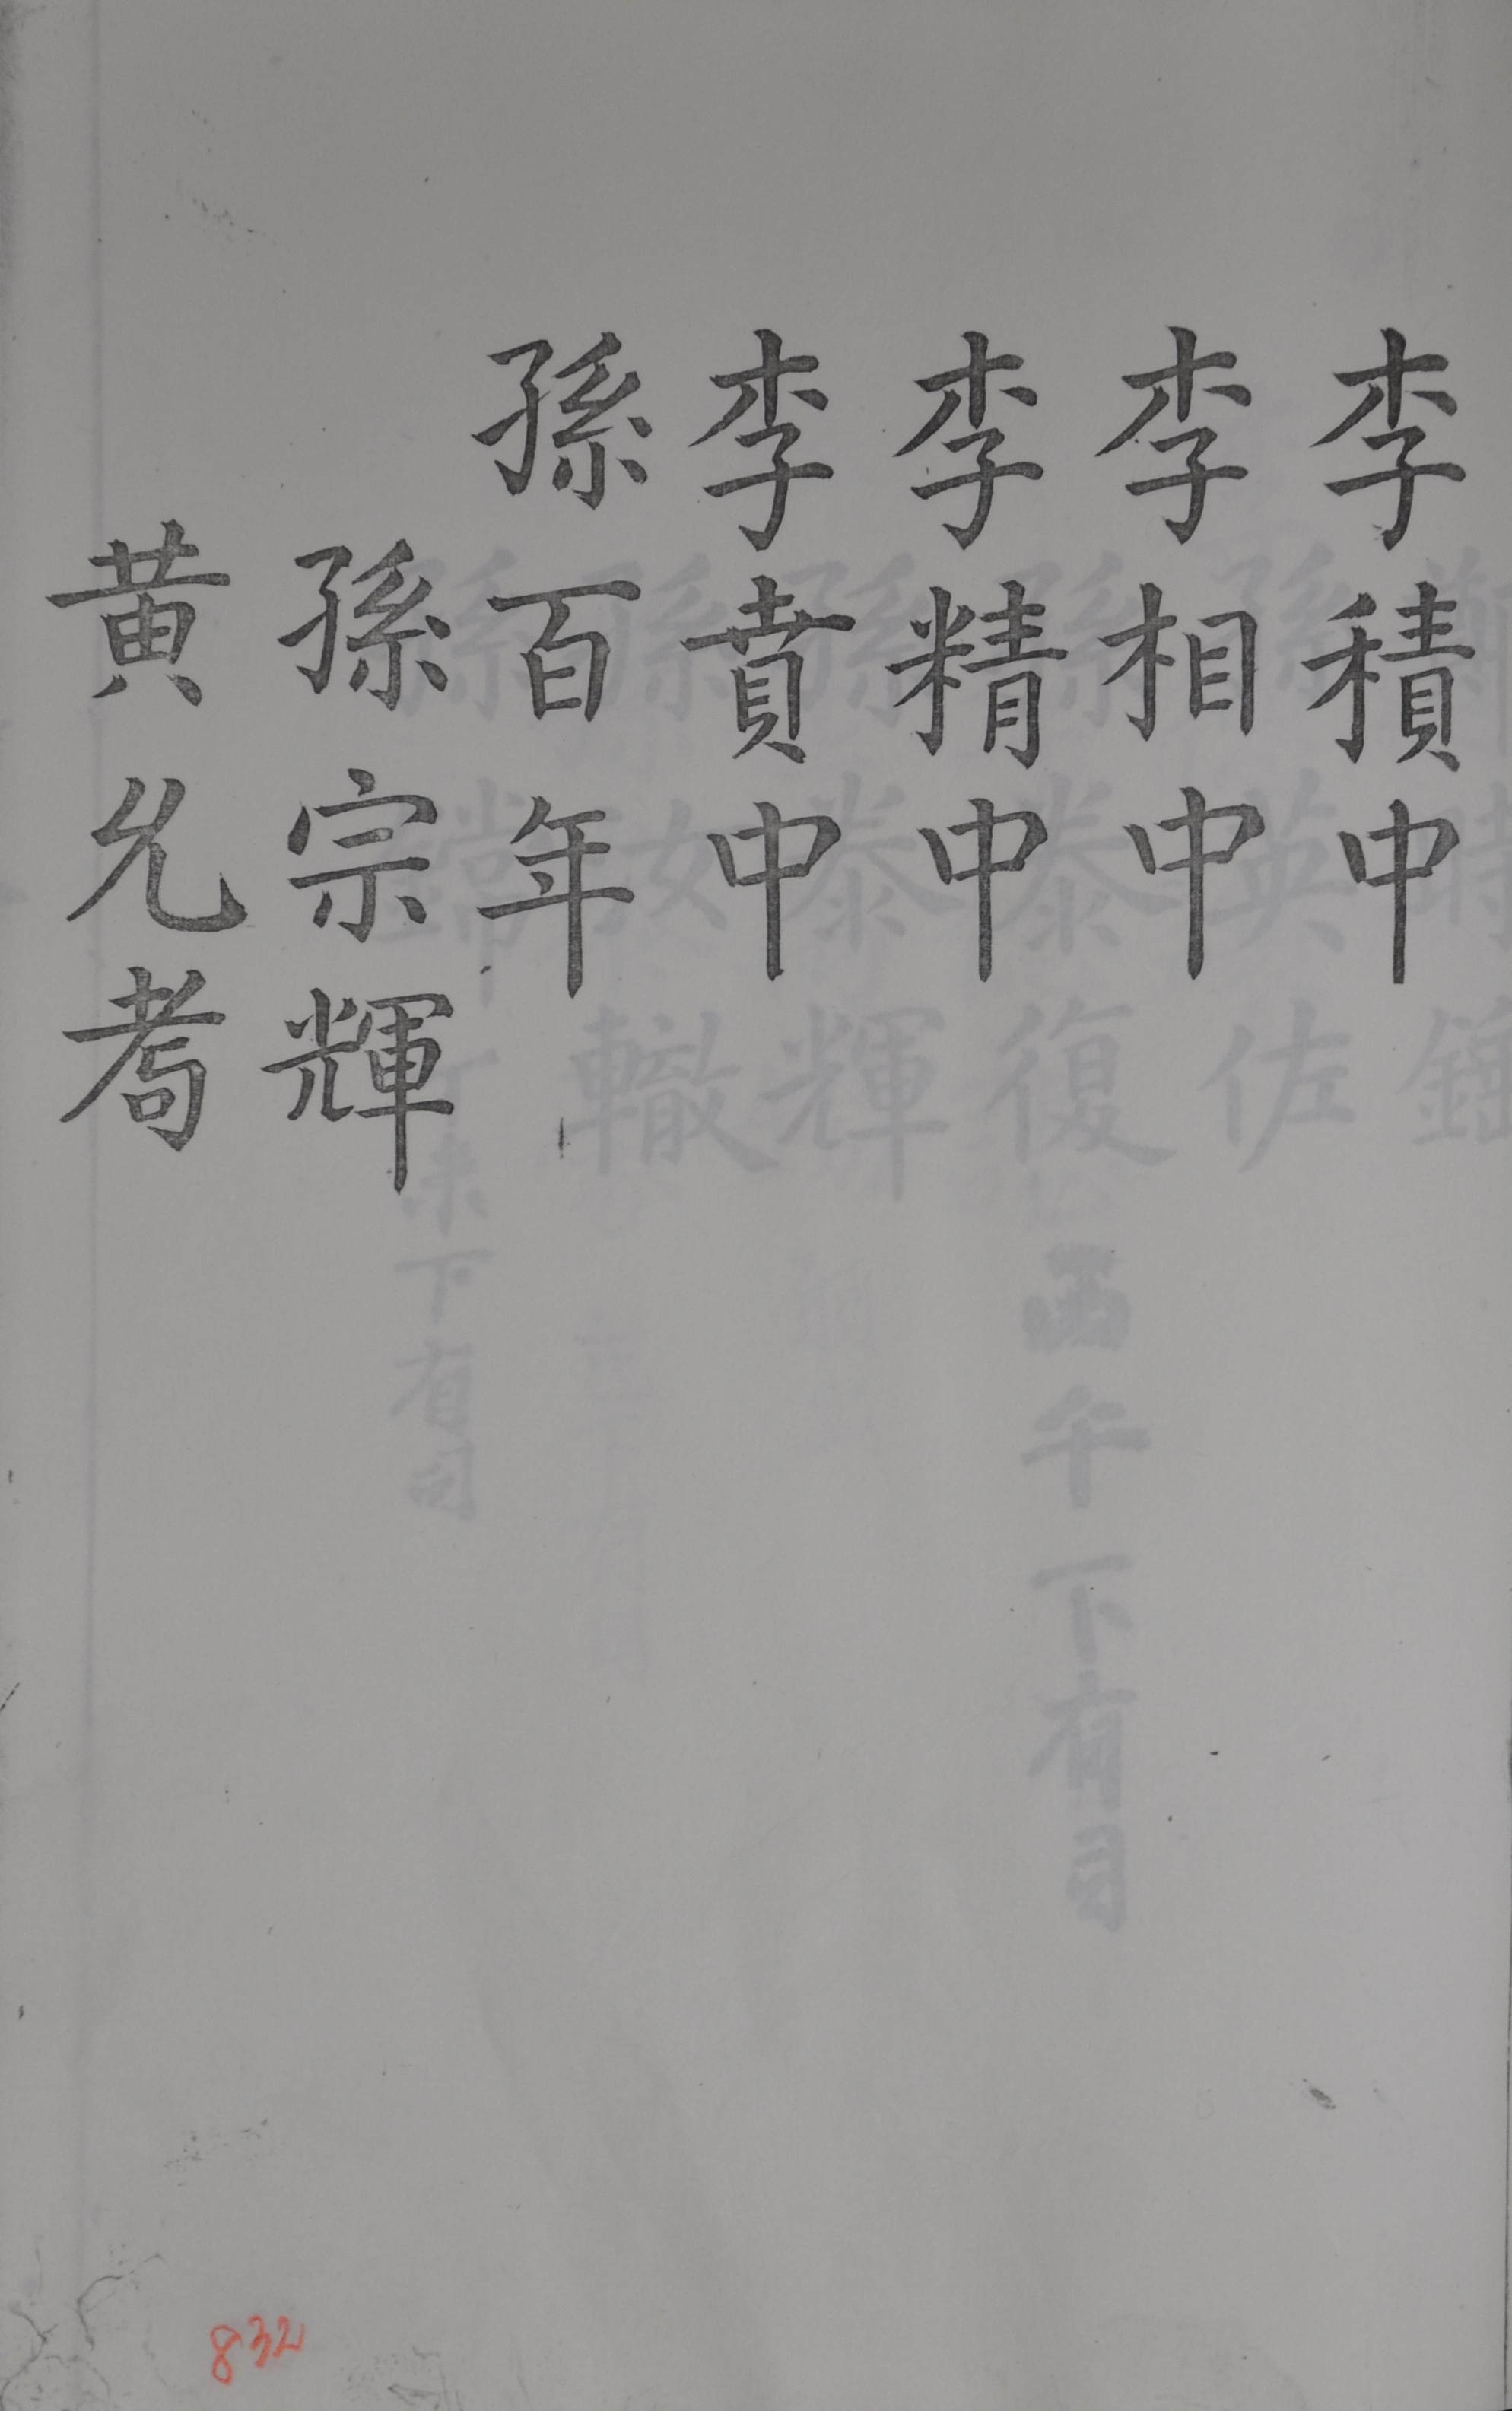 李積中
李相中
李精中
李賁中
孫百年
孫宗輝
黄允耇
832